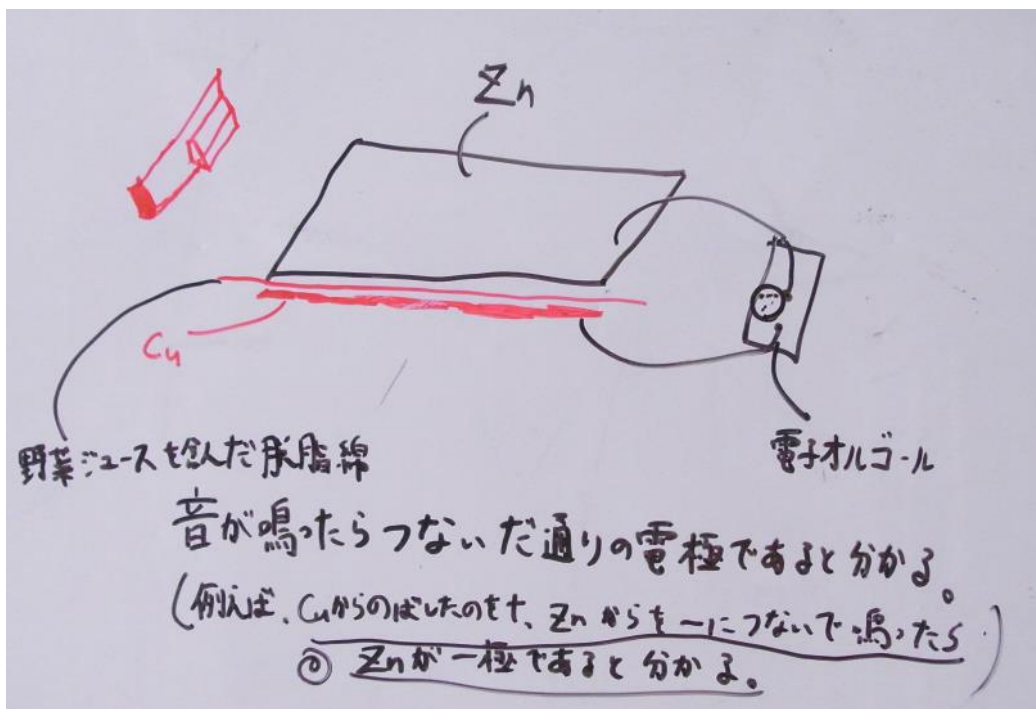 Zn
Cu
野菜ジュースを含んだ脱脂綿
電子オルゴール
音が鳴ったらつないだ通りの電極であると分かる。
(例えば、Cuからのばしたのを+、Znからを-につないで鳴ったら)
◎ Znが-極であると分かる。